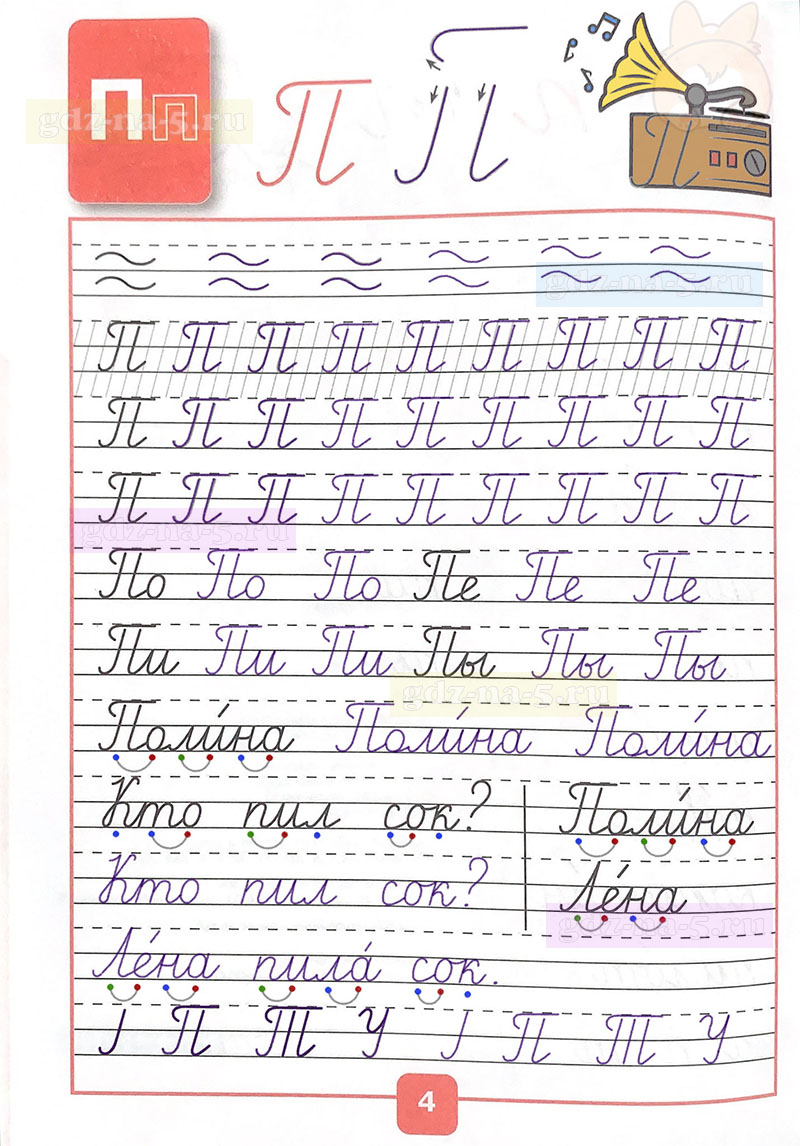 Пп П П
gdz-na-5.ru
П
gdz-na-5.ru
П П П П П П П П П
П П П П П П П П П
П П П П П П П П П
gdz-na-5.ru
По По По Пе Пе Пе
Пи Пи Пи Пы Пы Пы
gdz-na-5.ru
Поли́на Поли́на Поли́на
Кто пил сок? Поли́на
Кто пил сок? Ле́на
gdz-na-5.ru
Ле́на пила́ сок.
П Т У П Т У
4